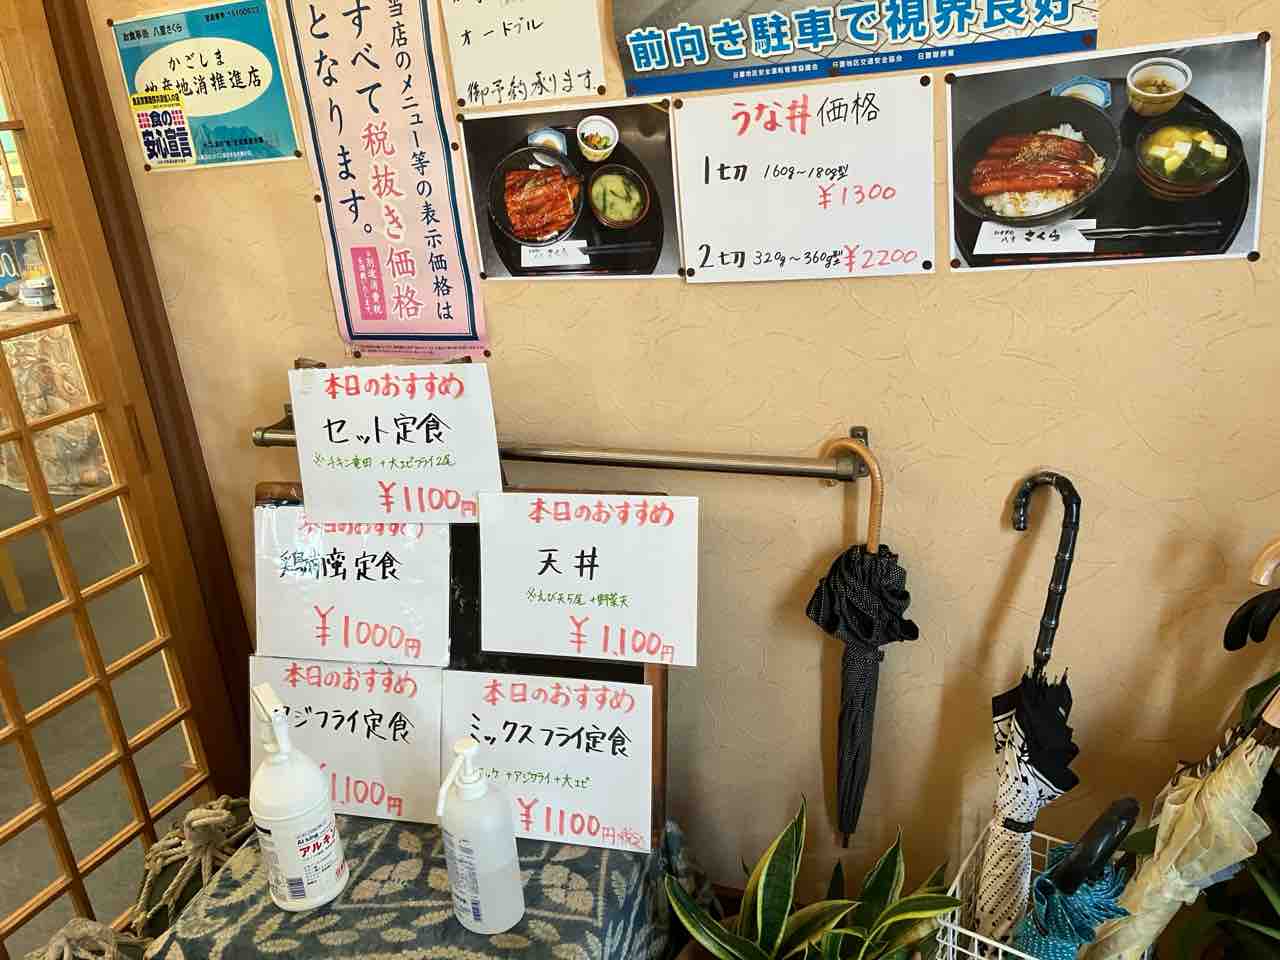 お食事処 八重さくら
かごしま
地産地消推進店
食の
安心宣言
当店のメニュー等の表示価格は
すべて税抜き価格
となります。
オードブル
御予約承ります。
前向き駐車で視界良好
うな丼 価格
1切 160g~180g型
¥1300
2切 320g~360g型 ¥2200
お食事処
八重 さくら
本日のおすすめ
セット定食
※チキン竜田 + 大エビフライ2尾
¥1100円
本日のおすすめ
鶏南蛮定食
¥1000円
本日のおすすめ
天丼
※えび天5尾 + 野菜天
¥1,100円
本日のおすすめ
アジフライ定食
¥1,100円
本日のおすすめ
ミックスフライ定食
+アジフライ+大エビ
¥1,100円
アルキン